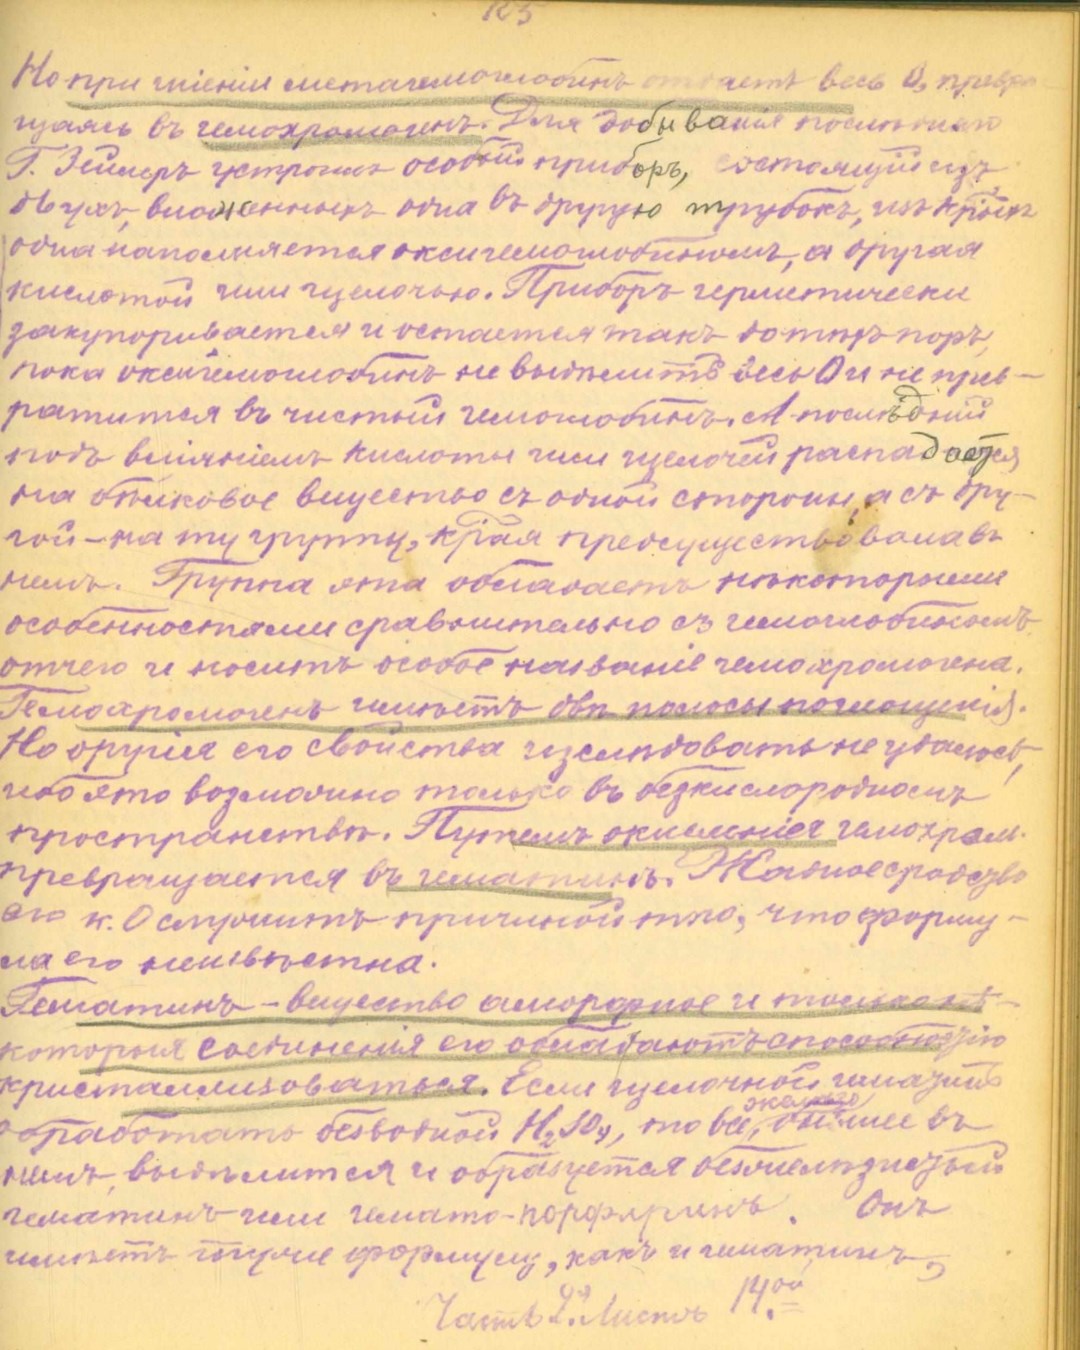 125
Но при гніеніи метагемоглобинъ отдаетъ весь О, превра-
щаясь въ гемохромогенъ. Для добыванія послѣдняго
Г. Зейлеръ устроилъ особый приборъ, состоящій изъ
двухъ, вложенныхъ одна въ другую трубокъ, изъ крыхъ
одна наполняется оксигемоглобиномъ, а другая
кислотой или щелочью. Приборъ герметически
закупоривается и остается такъ до тѣхъ поръ,
пока оксигемоглобинъ не выдѣлитъ весь О и не прев-
ратится въ чистый гемоглобинъ. А послѣдній
подъ вліяніемъ кислоты или щелочей распадается
на бѣлковое вещество съ одной стороны, а съ дру-
гой – на ту группу, края предсуществовала въ
немъ. Группа эта обладаетъ нѣкоторыми
особенностями сравнительно съ гемоглобиномъ
отчего и носитъ особое названіе гемохромогена.
Гемохромогенъ имѣетъ двѣ полосы поглощенія.
Но другія его свойства изслѣдовать не удалось,
ибо это возможно только въ безкислородномъ
пространствѣ. Путемъ окисленія гемохром.
превращается въ гематинъ. Жадное сродство
его к. О служитъ причиной того, что форму-
ла его неизвѣстна.
Гематинъ – вещество аморфное и только нѣ-
которыя соединенія его обладаютъ способностію
кристаллизоваться. Если щелочной гематинъ
обработать безводной H₂SO₄, то все желѣзо, бывшее въ
немъ, выдѣлится и образуется безжелѣзистый
гематинъ или гемато-порфиринъ. Онъ
имѣетъ такую формулу, какъ и гематинъ,
Часть 2ᵃ. Листъ 14ᵒⁱ.